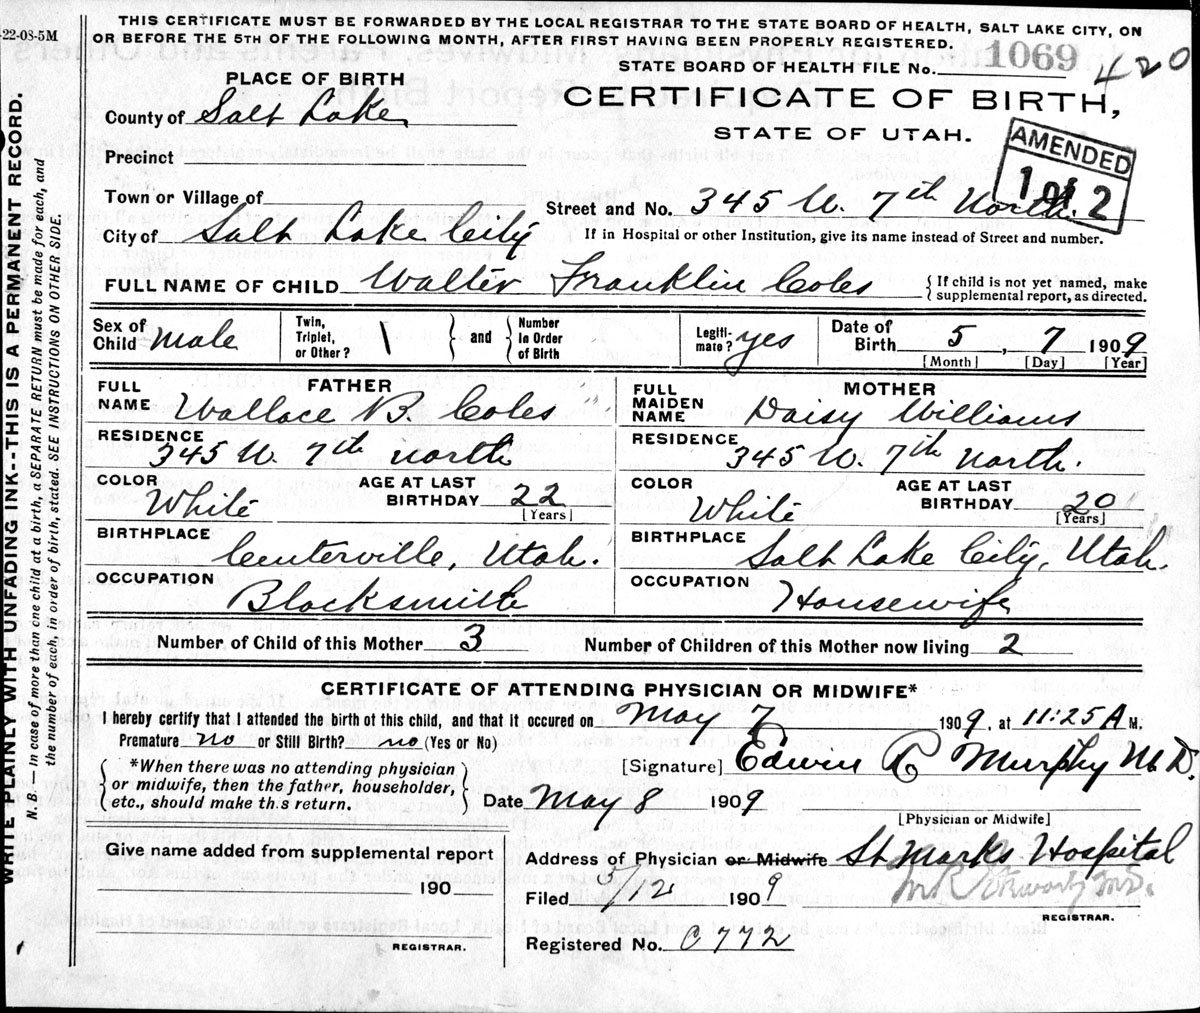 THIS CERTIFICATE MUST BE FORWARDED BY THE LOCAL REGISTRAR TO THE STATE BOARD OF HEALTH, SALT LAKE CITY, ON
OR BEFORE THE 5TH OF THE FOLLOWING MONTH, AFTER FIRST HAVING BEEN PROPERLY REGISTERED.
-22-08-5M
STATE BOARD OF HEALTH FILE No. 1069 420
PLACE OF BIRTH
CERTIFICATE OF BIRTH,
STATE OF UTAH.
AMENDED
1 of 2
County of Salt Lake
Precinct
Town or Village of
Street and No. 345 W. 7th North.
City of Salt Lake City
If in Hospital or other Institution, give its name instead of Street and number.
FULL NAME OF CHILD Walter Franklin Coles { If child is not yet named, make
supplemental report, as directed.
Sex of Child male Twin, Triplet, or Other? \ } and { Number In Order of Birth Legiti- mate? yes Date of Birth 5, 7 1909
[Month] [Day] [Year]
FATHER
FULL NAME Wallace B. Coles
RESIDENCE 345 W. 7th North
COLOR White AGE AT LAST BIRTHDAY 22 [Years]
BIRTHPLACE Centerville, Utah.
OCCUPATION Blacksmith
MOTHER
FULL MAIDEN NAME Daisy Williams
RESIDENCE 345 W. 7th North.
COLOR White AGE AT LAST BIRTHDAY 20 [Years]
BIRTHPLACE Salt Lake City, Utah.
OCCUPATION Housewife
Number of Child of this Mother 3 Number of Children of this Mother now living 2
CERTIFICATE OF ATTENDING PHYSICIAN OR MIDWIFE*
I hereby certify that I attended the birth of this child, and that it occured on May 7 1909, at 11:25 A M.
Premature no or Still Birth? no (Yes or No)
{ *When there was no attending physician
or midwife, then the father, householder,
etc., should make th s return. }
[Signature] Edwin C Murphy M.D.
Date May 8 1909
[Physician or Midwife]
Give name added from supplemental report
190
REGISTRAR.
Address of Physician or Midwife St Marks Hospital
Filed 5/12 1909
REGISTRAR.
Registered No. C772
WRITE PLAINLY WITH UNFADING INK--THIS IS A PERMANENT RECORD.
N. B.—In case of more than one child at a birth, a SEPARATE RETURN must be made for each, and
the number of each, in order of birth, stated. SEE INSTRUCTIONS ON OTHER SIDE.